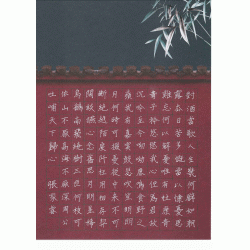 對酒當歌人生幾何譬如朝
露去日苦多慨當以慷憂思
難忘何以解憂惟有杜康青
青子衿悠悠我心但為君故
沉吟至今呦呦鹿鳴食野之
苹我有嘉賓鼓瑟吹笙明明
月何時可掇憂從中來不可
斷絕越陌度阡枉用相存契
闊談讌心念舊恩月明星稀
烏鵲南飛繞樹三匝何枝可
依山不厭高海不厭深周公
吐哺天下歸心